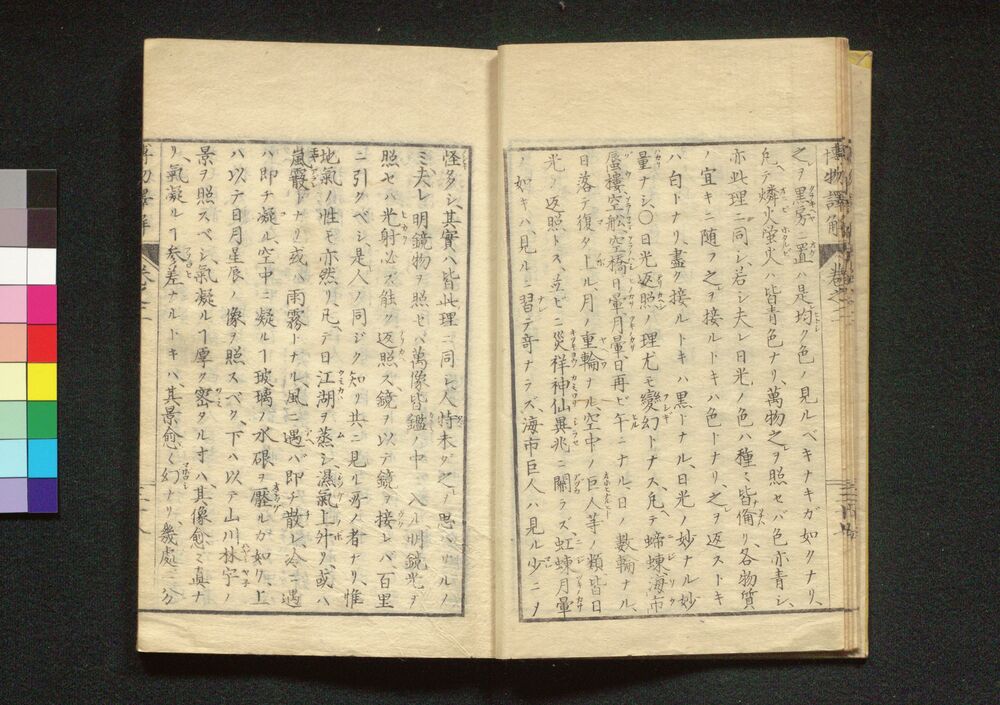 之ヲ黒房ニ置ハ是均ク色ノ見ルベキナキガ如クナリ、
凢テ燐火螢火ハ皆青色ナリ、萬物之ヲ照セバ色亦青シ、
亦此理ニ同シ、若シ夫レ日光ノ色ハ種々皆備リ各物質
ノ宜キニ随フ之ヲ接ルトキハ色トナリ、之ヲ返ストキ
ハ白トナリ、盡ク接ルトキハ黒トナル、日光ノ妙ナル妙
量ナシ、〇日光返照ノ理尤モ變幻トナス、凢テ蝃蝀海市
蜃樓空舩空橋日暈月暈、日再ビ午ニナル、日ノ數輪ナル、
日落テ復タ上ル、月ノ重輪ナル空中ノ巨人等ノ類皆日
光ノ返照トス、並ビニ災祥神仙異兆ニ關ラズ虹蝀月暈
ノ如キハ、見ルニ習テ竒ナラズ、海市巨人ハ見ル少ニノ
怪タシ、其實ハ皆此理ニ同シ、人特未ダ之ヲ思ハザルノ
ミ、夫レ明鏡物ヲ照セバ萬像皆鑑ノ中ニ入ル、明鏡光ヲ
照セバ光射必ズ能ク返照ス、鏡ヲ以テ鏡ヲ接レバ、百里
ニ引クベシ、是人ノ同ジク知リ共ニ見ル所ノ者ナリ、惟
地氣ノ性モ亦然リ凢テ日江湖ヲ蒸シ、濕氣上升リ、或ハ
嵐霰トナリ或ハ雨霧トナル、風ニ遇バ即チ散シ冷ニ遇
ハ即チ凝ル、空中ニ凝ルヿ玻璃ノ水硍ヲ塵ルガ如ク、上
ハ以テ日月星辰ノ像ヲ照スベク、下ハ以テ山川林宇ノ
景ヲ照スベシ、氣凝ルヿ厚ク密タル寸ハ、其像愈々真ナ
リ、氣凝ルヿ參差ナルトキハ、其景愈々幻ナリ、幾處ニ分